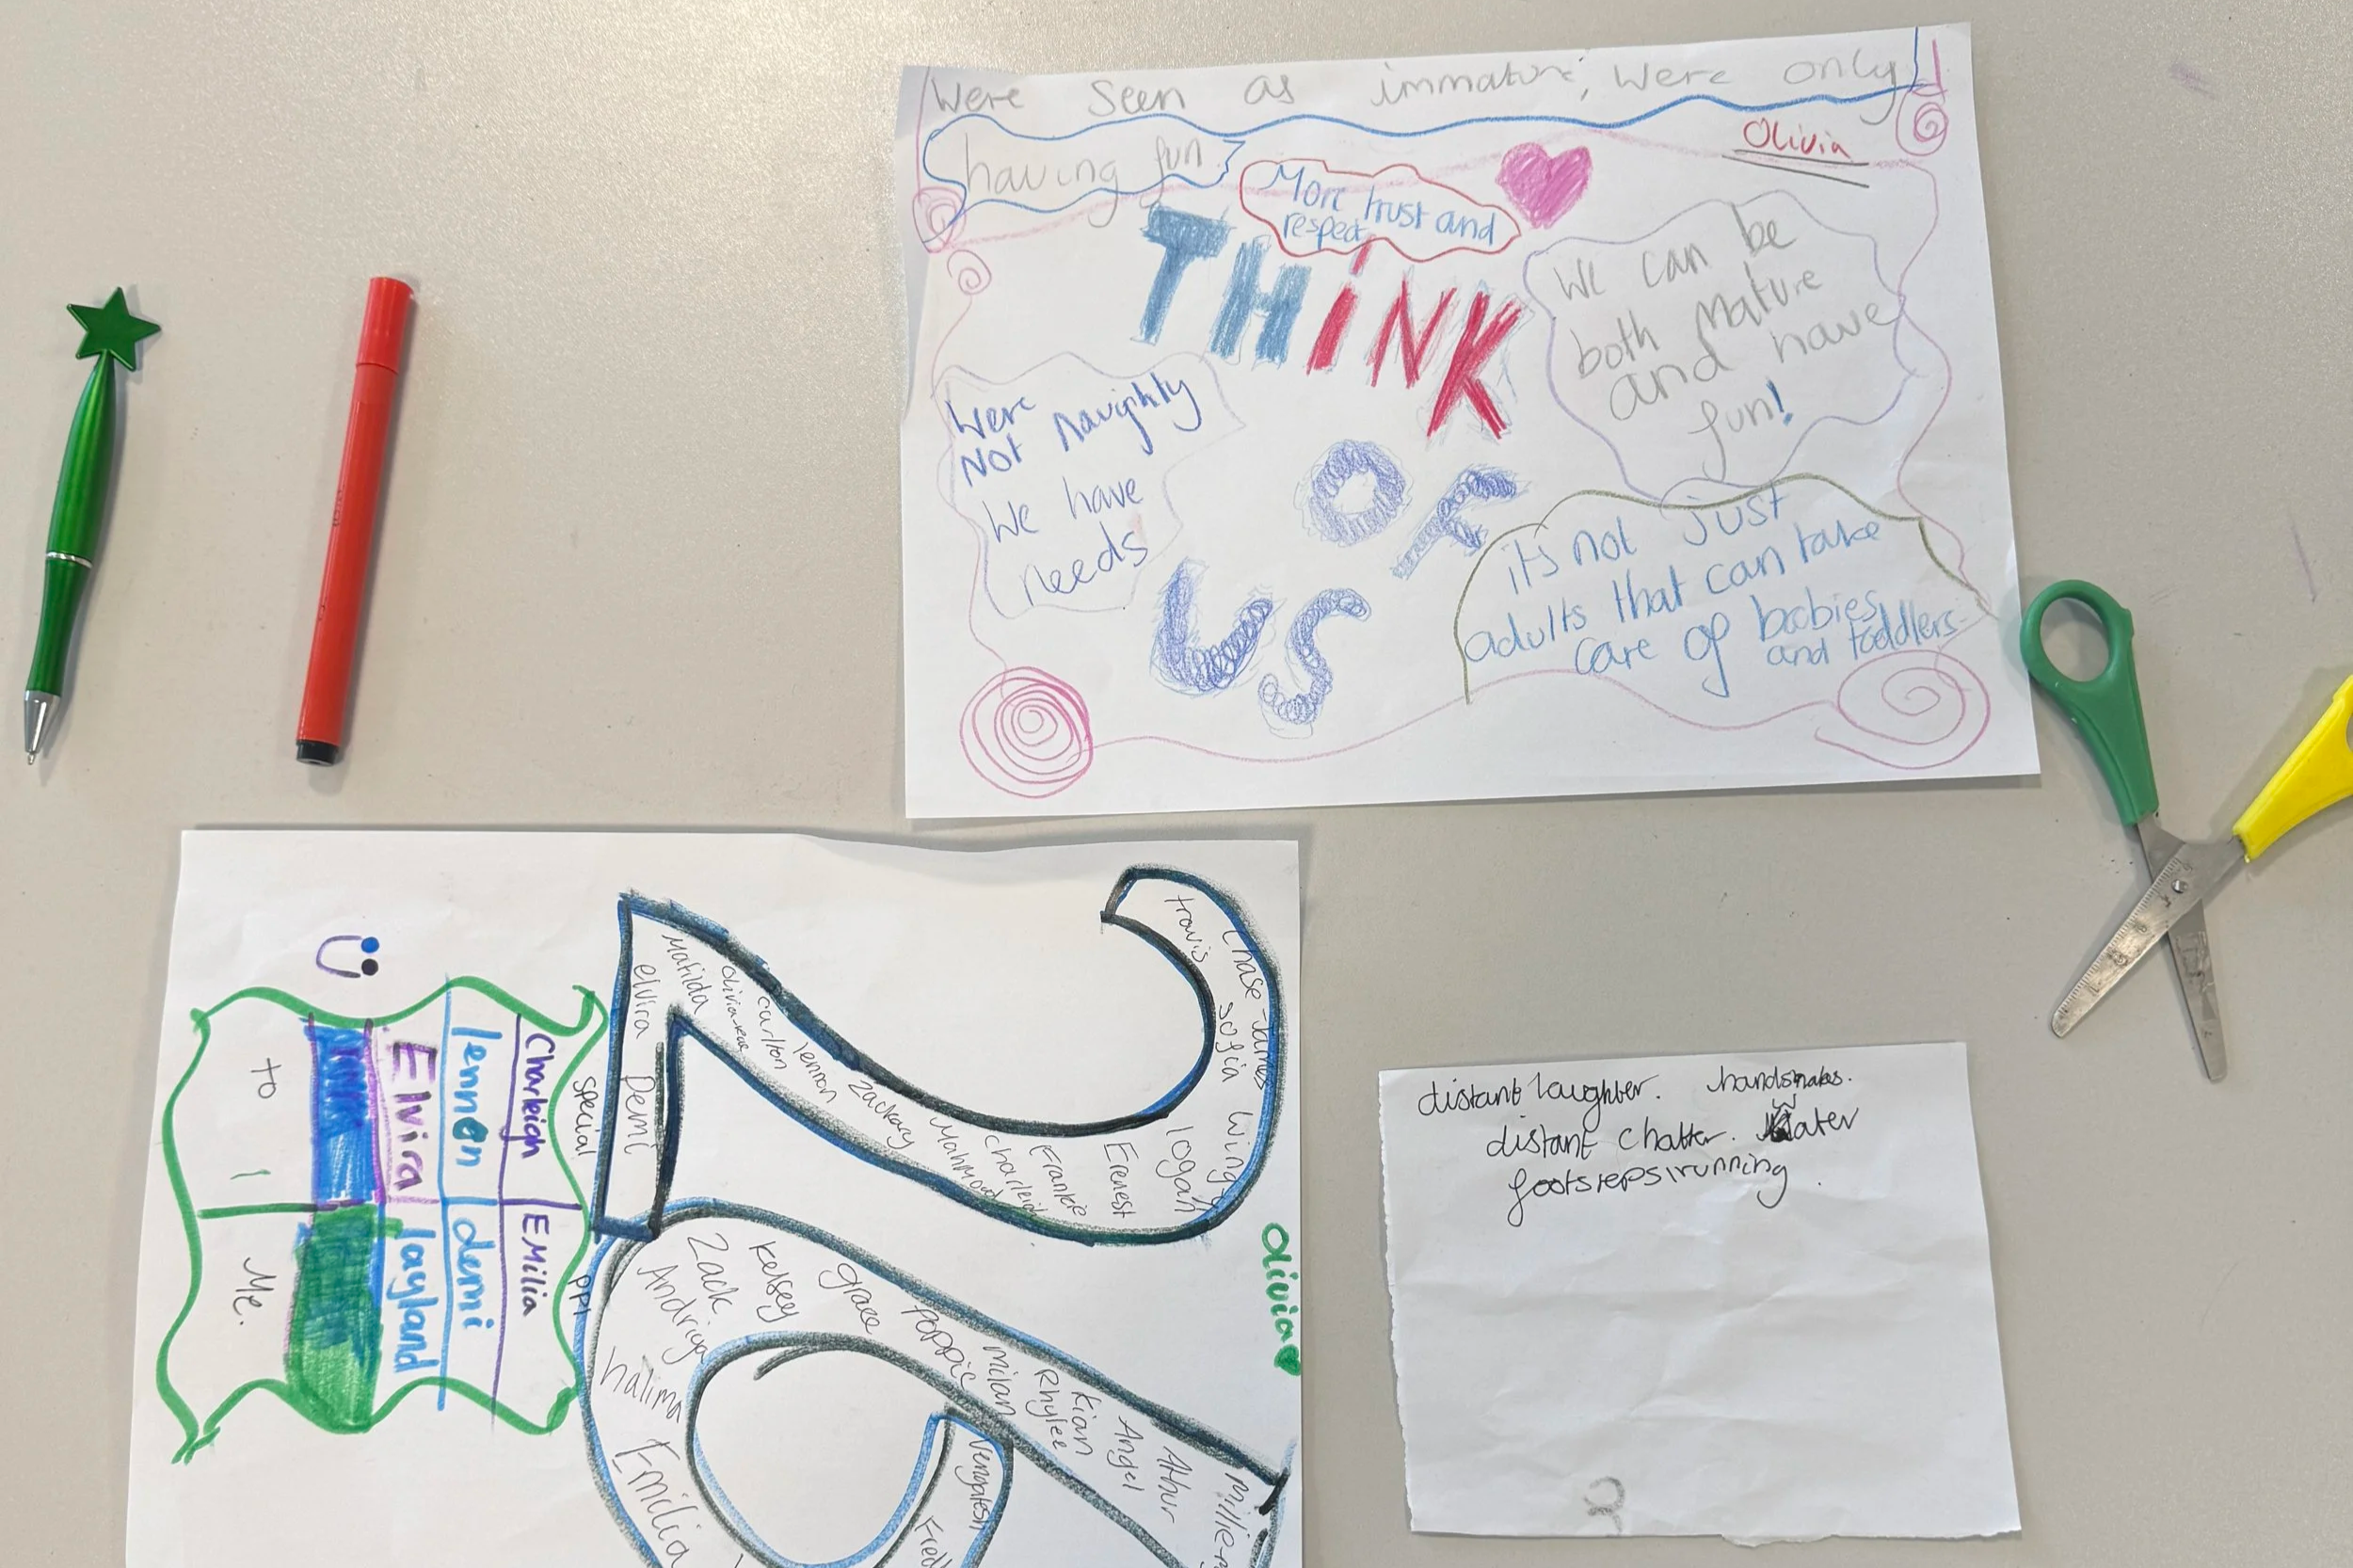 Were Seen as immature, were only
having fun
Olivia
More trust and
respect
THiNK
OF
US
We can be
both Mature
and have
fun!
Were
Not naughty
We have
needs
its not Just
adults that can take
care of babies
and toddlers
Chase-James
travis
sofia
Wing
logan
Erenest
Frankie
Charleigh
Mahmoud
Zackary
lennon
carlton
Matilda
elvira
Demi
Olivia
Millie-
Arthur
Angel
kian
Rhylee
Milan
Poppie
grace
Kelsey
Zack
Andriya
halima
Emilia
Vengatesh
Fred
special ppl
Charleigh EMilia
lennon demi
Elvira layland
to Me.
distant laughter. handshakes.
distant chatter. Water
footsteps running.